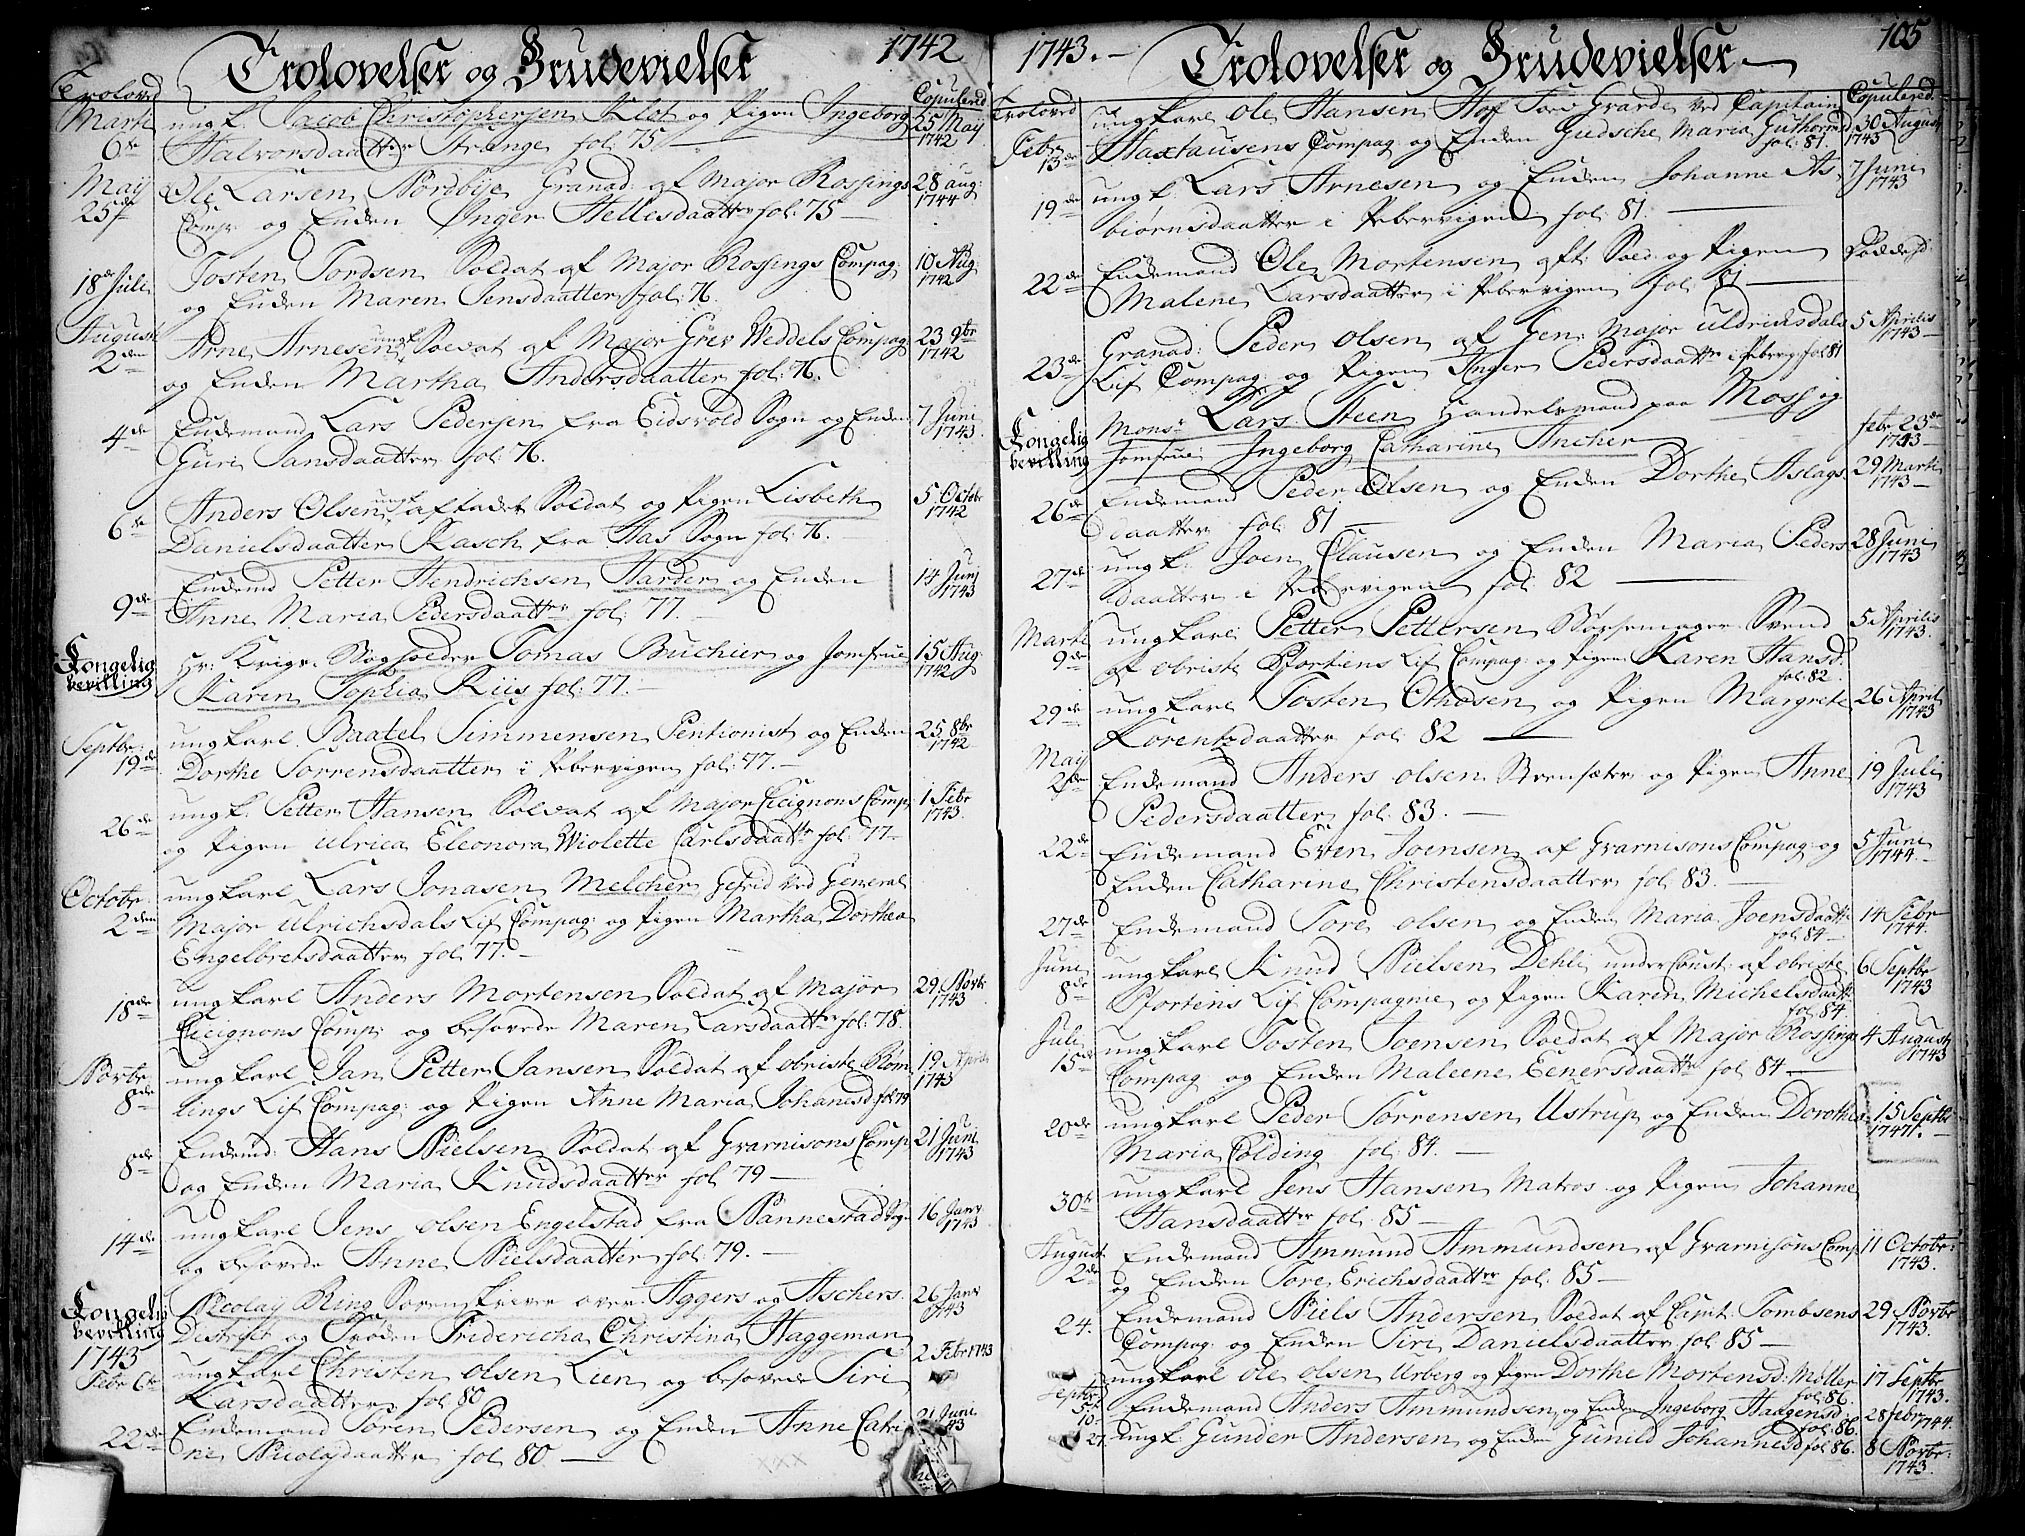 Trolovelser og Brudevielser 1742
Trolovet
Copulered
Marti 6te ungk. Jacob Christophersen Klot og Pigen Ingeborg 25 Maij 1742
Halvorsdaatter Strange fol: 75
Maij 25de Ole Larsen Nordbye Granad: af Major Rossings 28 aug: 1744
Comp: og Enken Inger Hellesdaatter fol: 75
18de Juli Tosten Tordsen Soldat af Major Rossings Compag: 10 Aug: 1742
og Enken Maren Jensdaatter fol: 76.
August 2den Arne Arnesen ungk. Soldat af Major Grev Weddels Compag: 23 9br 1742
og Enken Martha Andersdaatter fol: 76.
4de Enkemand Lars Pedersen fra Eidsvold Sogn og Enken 7 Juni 1743.
Guri Jansdaatter fol: 76.
6te Anders Olsen ungk. aftaket Soldat og Pigen Lisbeth 5 Octobr 1742
Danielsdaatter Rasch fra Aas Sogn fol: 76.
9de Enkemd Petter Hendrichsen Harder og Enken 14 Junj 1743
Anne Maria Pedersdaatter fol: 77.
Kongelig bevilling Hr: Krigs Bogholder Tomas Buchier og Jomfrue 15 Aug: 1742
Karen Sophia Riis fol: 77.
Septbr: 19de ungkarl Baatel Simmensen Pentionist og Enken 25 8br 1742
Dorthe Sørrensdaatter i Pebervigen fol: 77.
26de ungk. Petter Hansen Soldat af Major Cicignons Comp: 1 Febr 1743.
og Pigen Ulrica Eleonora Wiolette Carlsdaatter fol: 77
Octobr. 2den ungkarl Lars Jonasen Melcher Gefrid ved General
Major Ulrichsdals Lif Compag: og Pigen Martha Dorthea
Engelbretsdaatter fol 77.
18de ungkarl Anders Mortensen Soldat af Major 29 Novbr 1743
Cicignons Comp: og besovede Maren Larsdaatter fol: 78.
Novbr 8de ungkarl Jan Petter Jansen Soldat af obriste Røm 19 Aprilis 1743
lings Lif Compag: og Pigen Anne Maria Johanesd fol 79
8de Enkemd: Hans Nielsen Soldat af Guarnisons Comp 21 Juni 1743
og Enken Maria Knudsdaatter fol 79
14de ungkarl Jens Olsen Engelstad fra Nannestad Sog: 16 Janv 1743
og besovede Anne Nielsdaatter fol: 79.
Kongelig bevilling Nicolaij Ring Sorenskriver over Aggers og Aschers 26 Janv 1743
Destrigt og Frøken Fridericha Christina Haggeman
1743 Febr 6te ungkarl Christen Olsen Lien og besovede Siri 2 Febr 1743
Larsdaatter fol 80
22de Enkemand Søren Pedersen og Enken Anne Catri 21 Juni 43
ne Nicolaijdaatter fol 80
1743. Trolovelser og Brudevielser 105
Trolovet
Copulered
Febr 13de ungkarl Ole Hansen Hof Tow Garde ved Capitain 30 August 1743
Haxtausens Compag og Enken Gudsche Maria Guthormsd fol: 81.
19de ungk. Lars Arnesen og Enken Johanne As 7 Juni 1743
biørnsdaatter i Pebervigen fol. 81.
22de Enkemand Ole Mortensen aft: Sold: og Pigen
Malene Larsdaatter i Pebervigen fol: 81
23de Granad: Peder Olsen af Gen: Major Uldrichsdals 5 Aprilis 1743
Lif Compag: og Pigen Inger Pedersdaatter i Peberv: fol 81
Kongelig bevilling Monsr Lars Steen Handelsmand paa Moss og febr 23de 1743
Jomfrue Ingeborg Catharine Ancher
26de Enkemand Peder Olsen og Enken Dorthe Aslags 29 Marti 1743
daatter fol: 81
27de ungk: Joen Clausen og Enken Maria Peders 28 Juni 1743
daatter i Pebervigen fol: 82
Marti 9de ungkarl Petter Pettersen Bøssemager Svend 5 Aprilis 1743.
af obriste Stortiens Lif Compag: og Pigen Karen Hansd. fol: 82.
29de ungkarl Tosten Othosen og Pigen Margrete 26 April 1743
Lorentzdaatter fol: 82
Maij 2den Enkemand Anders Olsen Steensæter og Pigen Anne 19 Juli 1743
Pedersdaatter fol: 83.
22de Enkemand Even Joensen af Guarnisons Compag og 5 Juni 1744.
Enken Catharine Christensdaatter fol: 83.
27de Enkemand Tore Olsen og Enken Maria Joensdaatt: fol: 84 14 Febr 1744.
Juni 8de ungkarl Knud Nielsen Dehli underConst: af obriste 6 Septbr 1743
Stortens Lif Compagnie og Pigen Karen Michelsdaatt: fol. 84.
Juli 15de ungkarl Tosten Joensen Soldat af Major Rossings 4 August 1743
Compag og Enken Maleene Eenersdaatter fol 84
20de ungkarl Peder Sørrensen Ustrup og Enken Dorothea 15 Septbr 1747.
Maria Colding fol: 84.
30te ungkarl Jens Hansen Matros og Pigen Johanne
Hansdaatter fol: 85
August 2de Enkemand Ammund Ammundsen af Guarnisons Comp: 11 Octobr: 1743.
og Enken Tore Erichsdaatter fol: 85
24. Enkemand Niels Andersen Soldat af Capt: Tombsens 29 Novbr 1743.
Compag og Enken Siri Danielsdaatter fol: 85
Septbr 5te ungkarl Ole Olsen Urberg og Pigen Dorthe Mortensd: Møller fol: 86. 17 Septbr 1743.
10 Enkemand Anders Ammundsen og Enken Ingeborg Haagensd: fol: 86. 28 febr: 1744.
27. ungk: Gunder Andersen og Enken Gunild Johannesd fol 86. 8 Novbr: 1743.